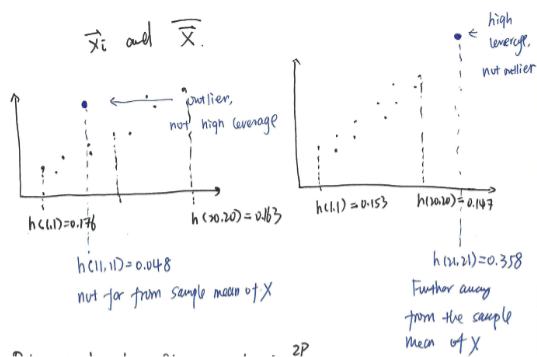 x⃗i and X̄⃗.
outlier,
not high leverage
h(1,1)=0.176
h(20,20)=0.163
h(11,11)=0.048
not far from sample mean of X
high
leverage,
not outlier
h(1,1)=0.153
h(20,20)=0.147
h(21,21)=0.358
Further away
from the sample
mean of X
2P